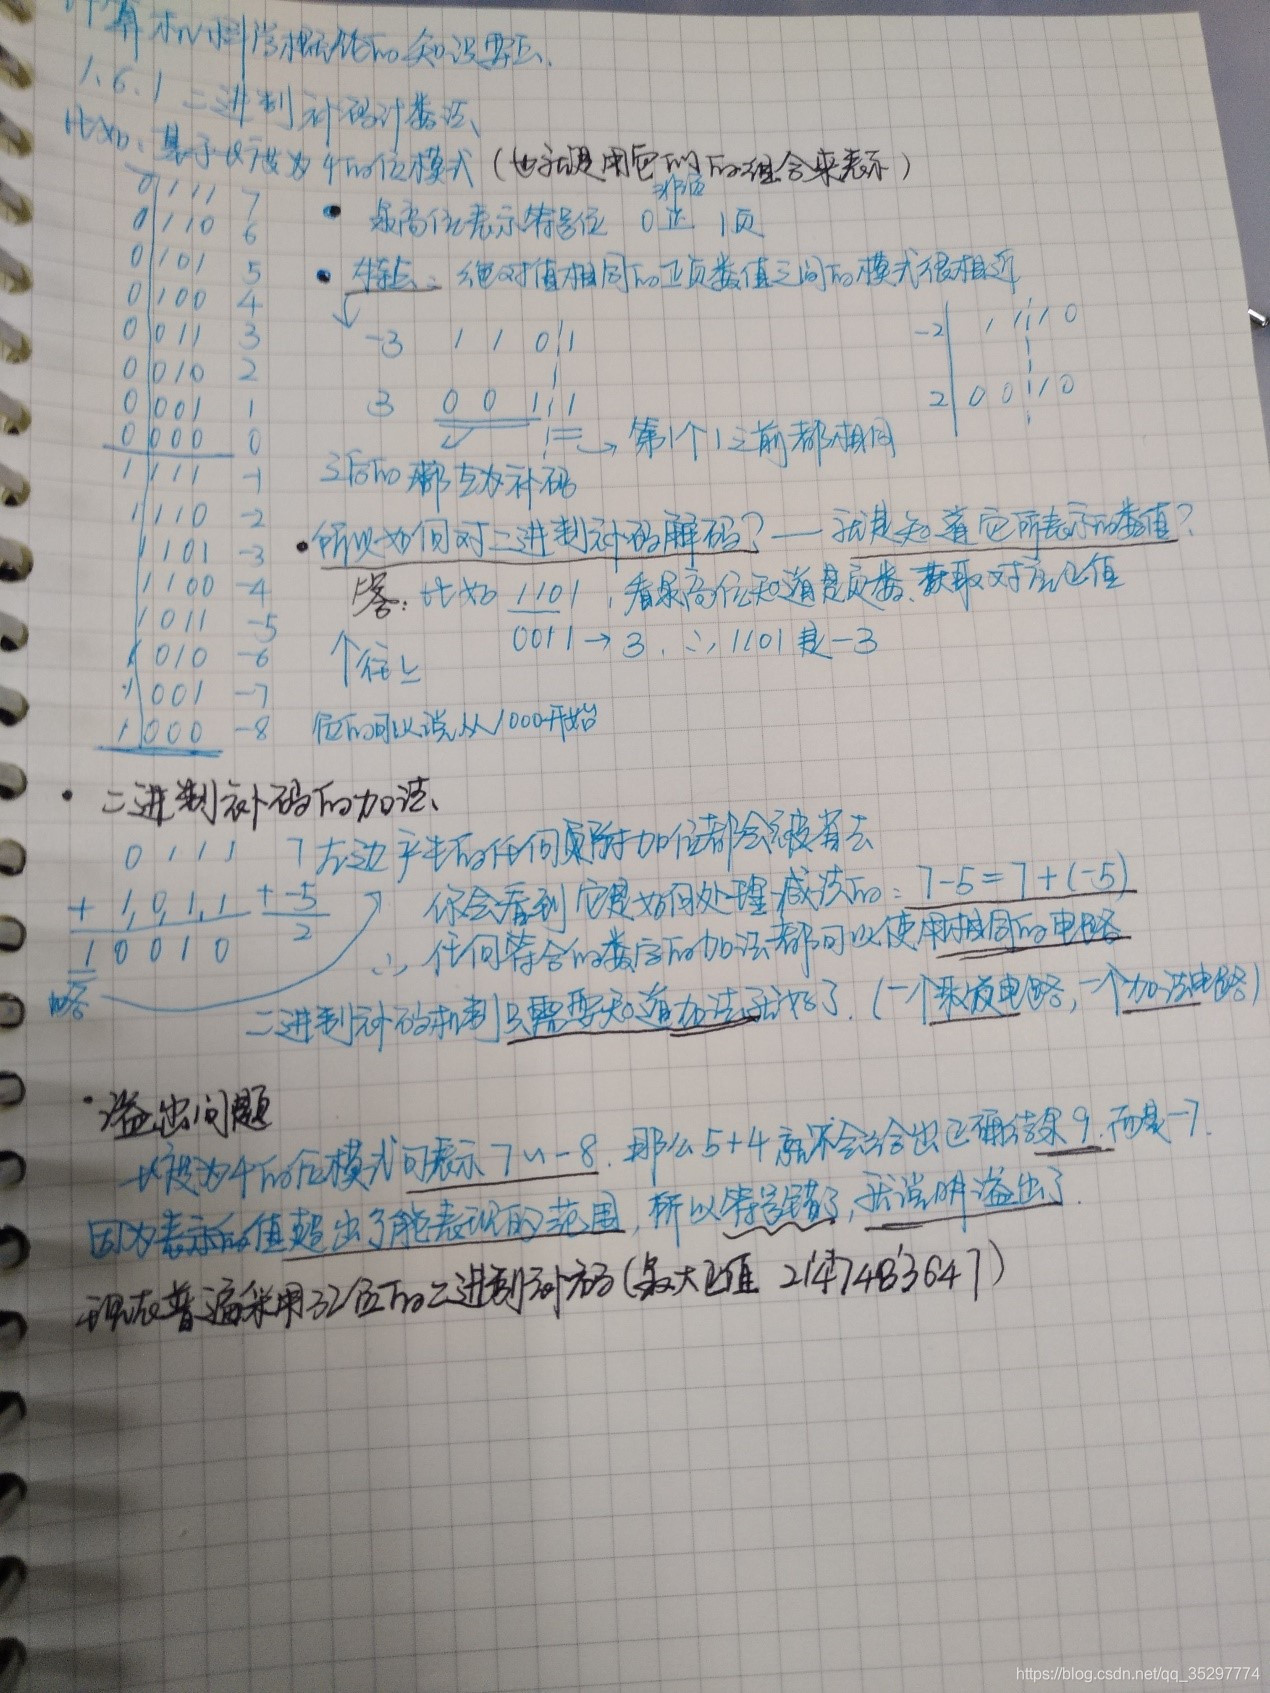 计算机科学概论的知识要点、
1.6.1 二进制补码计数法、
比如: 基于长度为4的位模式 (也就是用它们的组合来表示)
0111 7
0110 6
0101 5
0100 4
0011 3
0010 2
0001 1
0000 0
1111 -1
1110 -2
1101 -3
1100 -4
1011 -5
1010 -6
1001 -7
1000 -8
• 最高位表示符号位 0正 1负
• 特点: 绝对值相同的正负数值之间的模式很相近
-3 1 1 0 1
3 0 0 1 1
-2 1 1 1 0
2 0 0 1 0
→ 第1个1之前都相同
之后的都互为补码
• 所以如何对二进制补码解码? — 就是知道它所表示的数值?
答: 比如 1101, 看最高位知道是负数、获取对应正值
0011 → 3. ∴ 1101是-3
↑往上
位的可以说从1000开始
• 二进制补码的加法、
0 1 1 1 7
+ 1 0 1 1 + -5
1 0 0 1 0 2
略
左边产生的任何额外加位都会被省去
你会看到它是如何处理减法的: 7-5=7+(-5)
∴ 任何符合的数字的加法都可以使用相同的电路
二进制补码机制只需要知道加法就好了. (一个取负电路, 一个加法电路)
• 溢出问题
长度为4的位模式可表示7~-8. 那么5+4就不会给出正确结果9. 而是-7.
因为表示的值超出了能表现的范围, 所以符号错了, 就说明溢出了.
现在普遍采用32位的二进制补码(最大正值 2147483647)
https://blog.csdn.net/qq_35297774